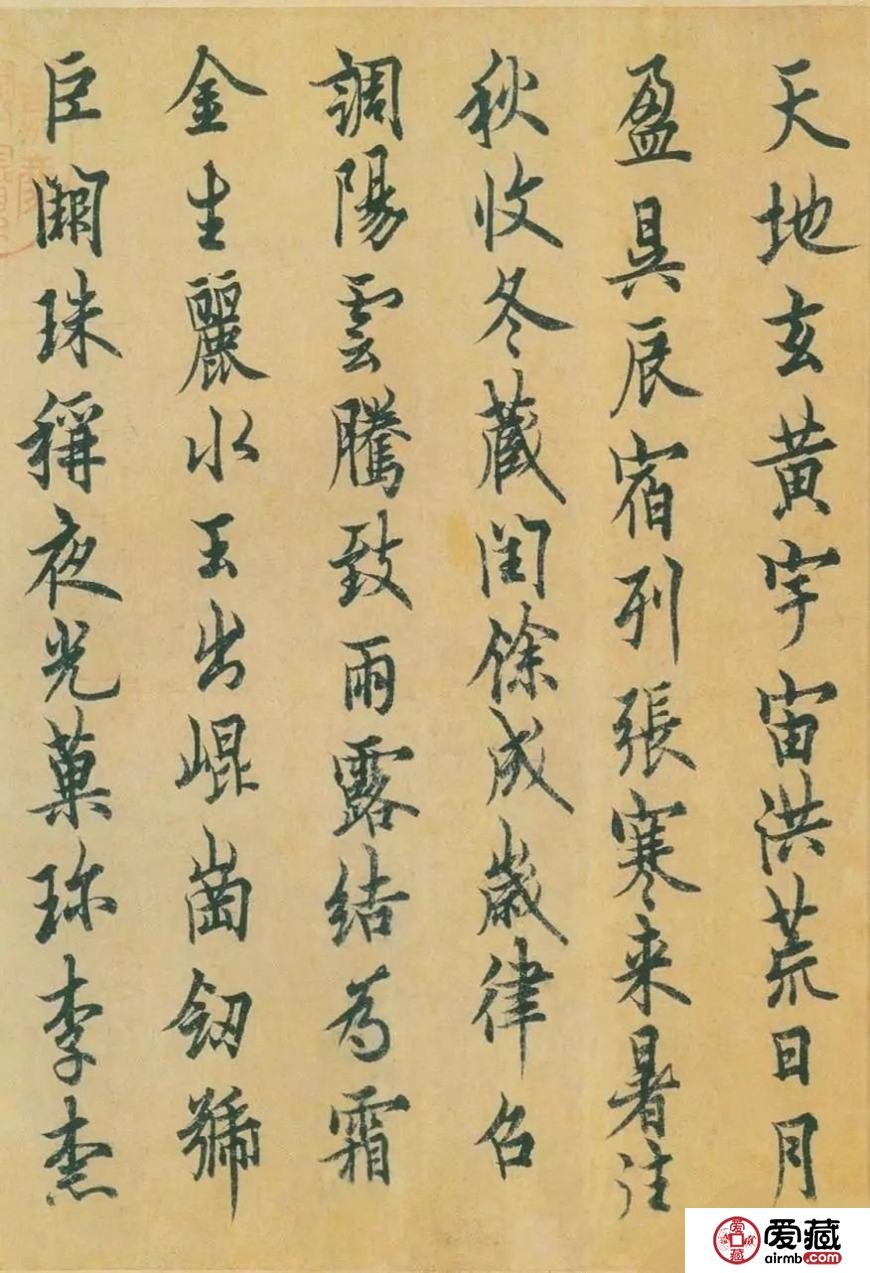 天地玄黃宇宙洪荒日月
盈昃辰宿列張寒来暑往
秋收冬藏閏餘成歲律召
調陽雲騰致雨露結為霜
金生麗水玉出崐崗劒號
巨闕珠稱夜光菓珎李柰
爱藏
airmb.com